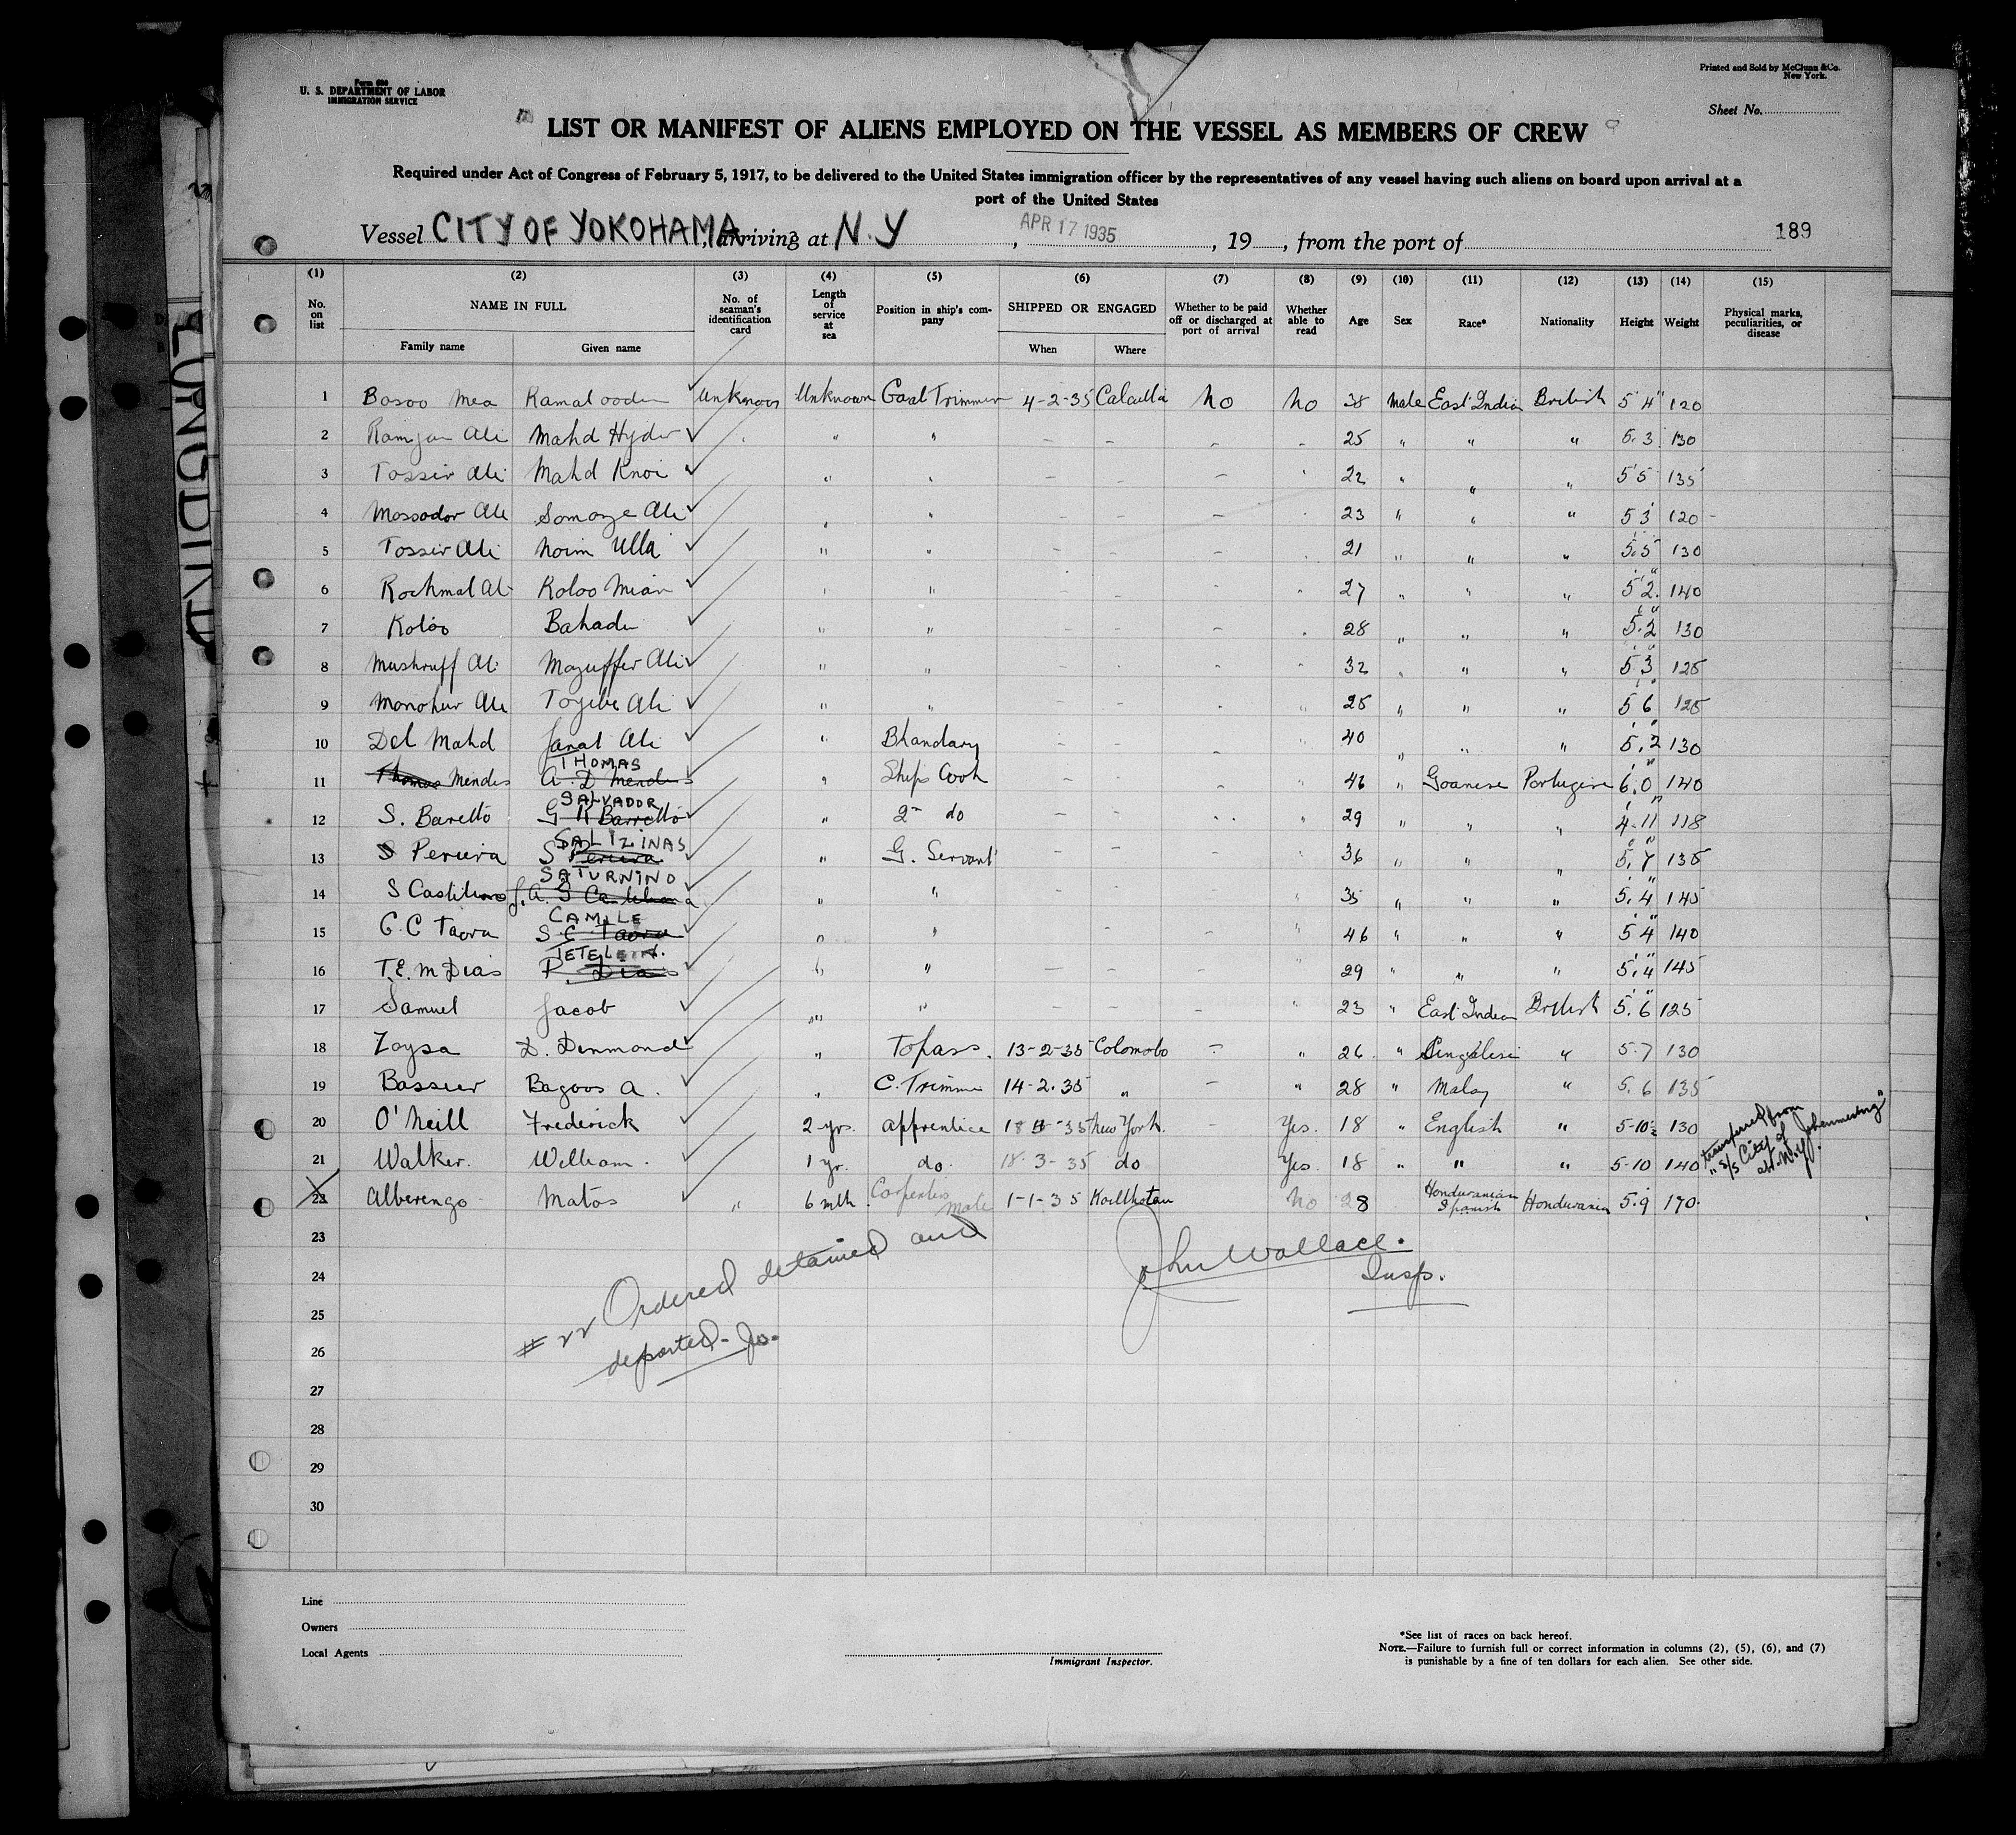 Form 680
U. S. DEPARTMENT OF LABOR
IMMIGRATION SERVICE
Printed and Sold by McClunn & Co.
New York.
Sheet No.
LIST OR MANIFEST OF ALIENS EMPLOYED ON THE VESSEL AS MEMBERS OF CREW
Required under Act of Congress of February 5, 1917, to be delivered to the United States immigration officer by the representatives of any vessel having such aliens on board upon arrival at a
port of the United States
Vessel CITY OF YOKOHAMA, arriving at N.Y, APR 17 1935, 19, from the port of 189
(1) (2) (3) (4) (5) (6) (7) (8) (9) (10) (11) (12) (13) (14) (15)
No. on list NAME IN FULL No. of seaman's identification card Length of service at sea Position in ship's company SHIPPED OR ENGAGED Whether to be paid off or discharged at port of arrival Whether able to read Age Sex Race* Nationality Height Weight Physical marks, peculiarities, or disease
Family name Given name When Where
1 Bosoo Mea Kamal ooden Unknown Unknown Coal Trimmer 4-2-35 Calcutta No No 38 Male East Indian British 5 4" 120
2 Ramjan Ali Mahd Hyder " " - - - - 25 " " " 5.3 130
3 Tossir Ali Mahd Knoi " " - - - 22 " " " 5'5 135
4 Mosoodor Ali Somaye Ali " " - - - 23 " " " 5 3 120 -
5 Tossir Ali Noim Ulla " " - - - 21 " " " 5.5 130
6 Rockmal Al Koloo Mian " " - - - 27 " " " 5'2" 140
7 Koloo Bahadu " " - - - 28 " " " 5.2 130
8 Mushruff Al Mozuffer Ali " " - - - 32 " " " 5'3" 125
9 Monohur Ali Toyebe Ali " " - - - 25 " " " 5'6" 125
10 Del Mahd Janal Ali " Bhandary - - - " 40 " " " 5'2" 130
THOMAS
11 Thomas Mendes A. D Mendes " Ships Cook - - - 46 " Goanese Portugese 6'0" 140
SALVADOR
12 S. Baretto G H Barretto " 2nd do - - " 29 " " " 4'11" 118
SALIZINAS
13 S Pereira S Pereira " G. Servant - - - " 36 " " " 5'7" 135
SATURNINO
14 S Castilano " " - - - " 35 " " " 5'4" 145
CAMILE
15 C. C Taora S C Taora " " - - " 46 " " " 5'4" 140
16 T.E. M Dias P. Dias " " - - - " 29 " " " 5'4" 145
17 Samuel Jacob " " - - - " 23 " East Indian British 5'6" 125
18 Zoysa D. Denmond " Topass. 13-2-35 Colombo - " 26 " Singalese " 5.7 130
19 Bassier Bagoos A. " C. Trimmer 14-2.35 " - " 28 " Malay " 5.6 135
20 O'Neill Frederick 2 yrs. apprentice 18 -35 New York. - Yes. 18 " English " 5-10½ 130 transferred from
21 Walker. William. 1 yr. do. 18-3-35 do Yes. 18 " " " 5-10 140 "s/s City of Johannesburg"
at N.Y.
22 Alberengo Matos " 6 mth Carpenters Mate 1-1-35 No 28 Honduranian Spanish Honduranian 5.9 170.
23
24
25
26
27
28
29
30
#22 Ordered detained and
deported - Jw.
John Wallace.
Insp.
Line
Owners
Local Agents
Immigrant Inspector.
*See list of races on back hereof.
NOTE.—Failure to furnish full or correct information in columns (2), (5), (6), and (7)
is punishable by a fine of ten dollars for each alien. See other side.